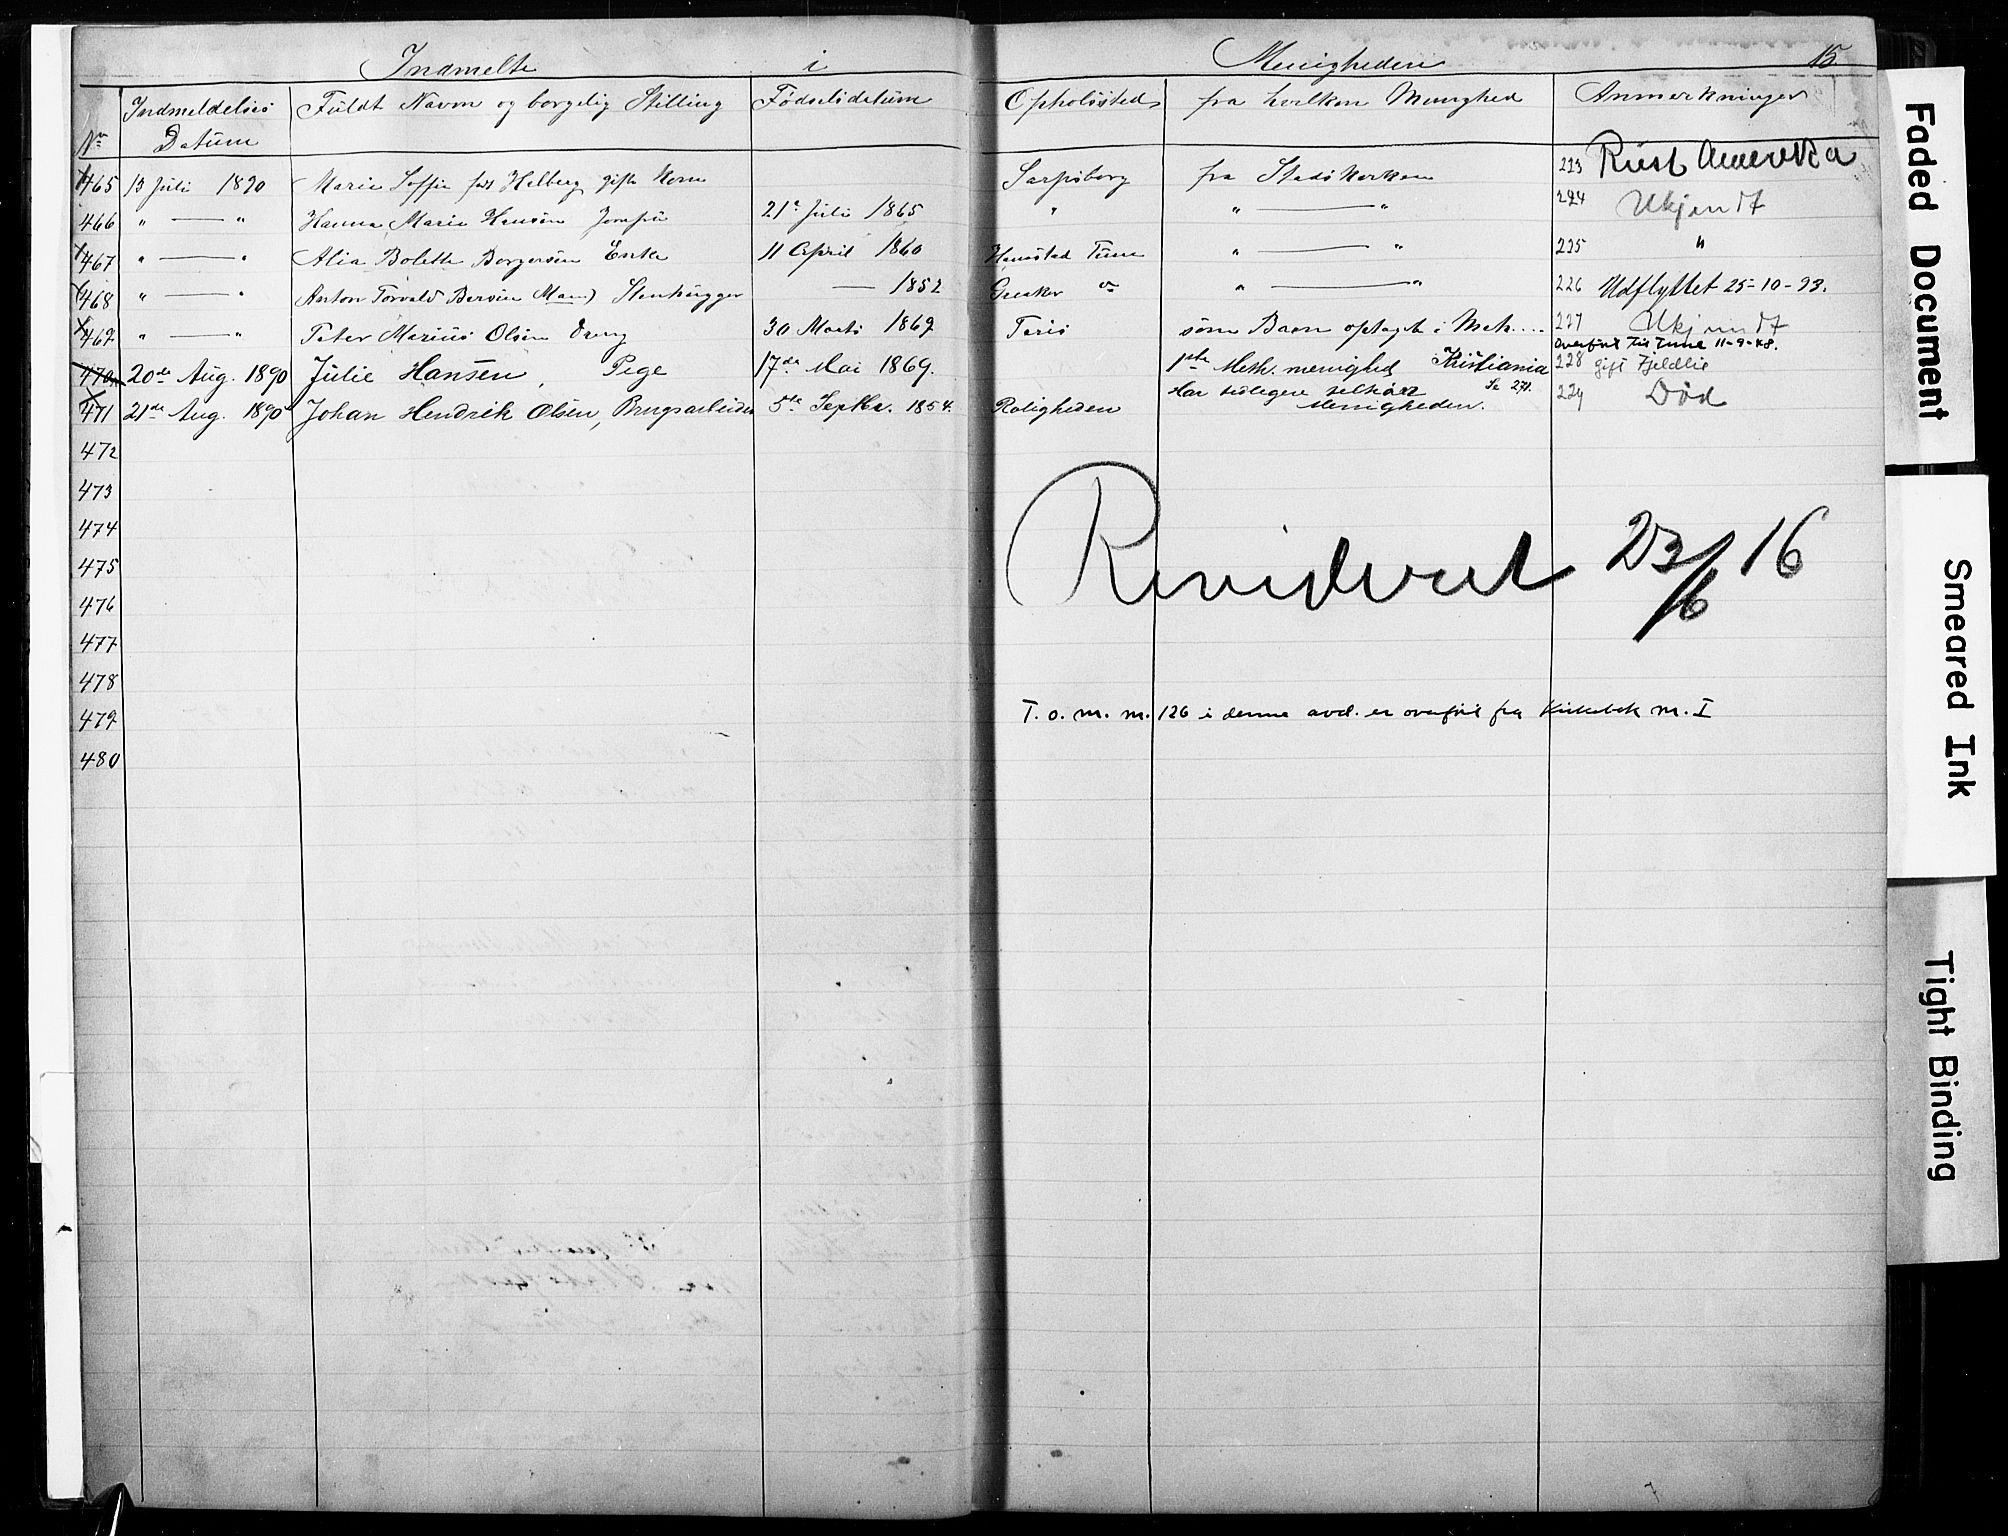 Indmelte i Menigheden 15
No Indmeldelses Datum Fuldt Navn og borgelig Stilling Fødselsdatum Opholssted fra hvilken Menighed Anmerkninger
465 13 Juli 1890 Marie Soffie fød Helberg gift Kone Sarpsborg fra Statskerken 223 Reist Amerika
466 " — " Hanna Marie Hansen Jomfru 21de Juli 1865 " " — " 224 Ukjendt
467 " — " Alia Bolette Borgersen Enke 11 April 1860 Tune " — " 225 "
468 " — " Anton Torvald Bersen Mand Stenhugger — 1852 Greaker " — " 226 Udflyttet 25-10-93.
469 " — " Peter Marius Olsen Dreng 30 Marts 1869 som Barn optaget i Meh... 227 Ukjendt
overført til Tune 11-9-48.
470 20de Aug. 1890 Julie Hansen, Pige 17de Mai 1869. 1ste Meth. menighed Kristiania 228 gift Fjeldlie
Se 271.
471 21de Aug. 1890 Johan Hendrik Olsen, Brugsarbeider 5te Septbr. 1854. Roligheden Har tidligere tilhørt Menigheden. 229 Død
472
473
474
475
476
477
478
479
480
Revideret 23/6 16
T. o. m. m. 126 i denne avd. er overført fra Kirkebok m. I
Faded Document
Smeared Ink
Tight Binding